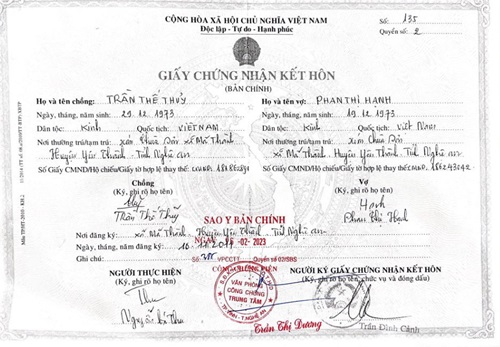 CỘNG HÒA XÃ HỘI CHỦ NGHĨA VIỆT NAM
Độc lập - Tự do - Hạnh phúc
Số: 135
Quyển số: 2
GIẤY CHỨNG NHẬN KẾT HÔN
(BẢN CHÍNH)
Họ và tên chồng: TRẦN THẾ THUỶ
Ngày, tháng, năm sinh: 29.12.1973
Dân tộc: Kinh Quốc tịch: VIỆT NAM
Nơi thường trú/tạm trú: xóm Chùa xã Mã Thành
Huyện Yên Thành, Tỉnh Nghệ an
Số Giấy CMND/Hộ chiếu/Giấy tờ hợp lệ thay thế:
Chồng
(Ký, ghi rõ họ tên)
Thuỷ
Trần Thế Thuỷ
Họ và tên vợ: PHAN THỊ HẠNH
Ngày, tháng, năm sinh: 19.12.1973
Dân tộc: Kinh Quốc tịch: Việt Nam
Nơi thường trú/tạm trú: xóm Chùa
xã Mã Thành, Huyện Yên Thành, Tỉnh Nghệ an
Số Giấy CMND/Hộ chiếu/Giấy tờ hợp lệ thay thế:
Vợ
(Ký, ghi rõ họ tên)
Hạnh
Phan Thị Hạnh
SAO Y BẢN CHÍNH
Nơi đăng ký: xã Mã Thành - Huyện Yên Thành - Tỉnh Nghệ an
Ngày, tháng, năm đăng ký:
NGÀY -02- 2023
Ghi chú:
Số VPCCTT Quyển số 02/SRS
NGƯỜI THỰC HIỆN
(Ký, ghi rõ họ tên)
NGƯỜI KÝ GIẤY CHỨNG NHẬN KẾT HÔN
(Ký, ghi rõ họ tên, chức vụ và đóng dấu)
VĂN PHÒNG
CÔNG CHỨNG
TRUNG TÂM
Trần Thị Dương
Trần Đình Cảnh